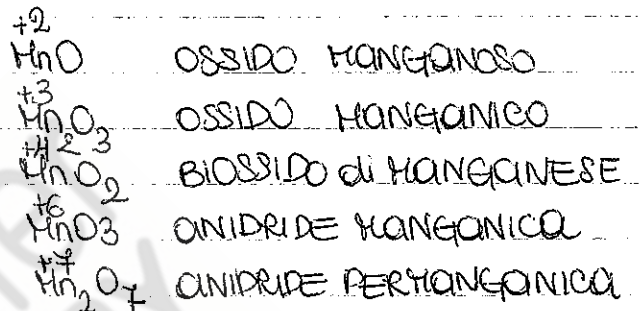 +2
MnO OSSIDO MANGANOSO
+3
Mn2O3 OSSIDO MANGANICO
+4
MnO2 BIOSSIDO di MANGANESE
+6
MnO3 ANIDRIDE MANGANICA
+7
Mn2O7 ANIDRIDE PERMANGANICA